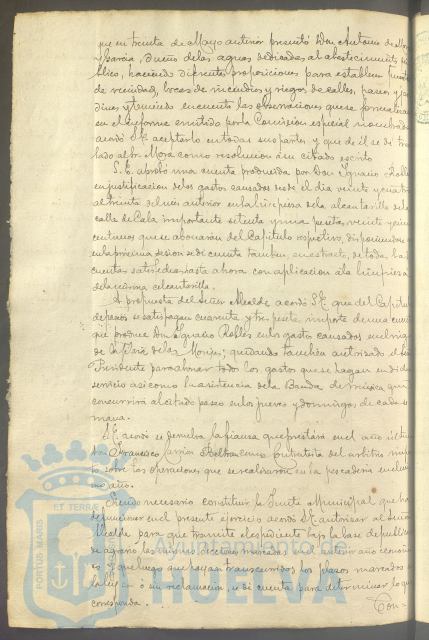 que en treinta de Mayo anterior presentó Don Antonio de Mora
y Garcia, dueño de las aguas dedicadas al abastecimiento pú-
blico, haciendo diferentes proposiciones para establecer fuentes
de vecindad, bocas de incendios y riegos de calles, paseos y jar-
dines y teniendo en cuenta las observaciones que se formulan
en el informe emitido por la Comision especial nombrada
acordó S.E. aceptarlo en todas sus partes y que de él se dé tras-
lado al Sr. Mora como resolucion á su citado escrito
S.E. aprobó una cuenta producida por Don Ignacio Robles
en justificacion de los gastos causados desde el dia veinte y cuatro
al treinta del mes anterior en la limpieza de la alcantarilla de la
calle de Cala importante setenta y una peseta, veinte y cinco
centimos que se abonarán del Capitulo respectivo, disponiendose
en la proxima sesion se dé cuenta tambien, en extracto, de todas las
cuentas satisfechas hasta ahora con aplicacion á la limpieza
de la misma alcantarilla.
A propuesta del Señor Alcalde acordó S.E. que del Capitulo
de paseos se satisfagan cuarenta y tres pesetas importe de una cuenta
que produce Don Ignacio Robles en los gastos causados en el riego
de la Plaza de las Monjas; quedando tambien autorizado el Señor
Presidente para abonar todos los gastos que se hagan en dicho
servicio asi como la asistencia de la Banda de musica que
concurrirá al citado paseo en los jueves y domingos de cada se-
mana.
S.E. acordó se devuelva la fianza que prestára en el año último
Don Francisco Esteban como contratista del arbitrio impues-
to sobre las operaciones que se realizaron en la pescaderia en el mis-
mo año.
Siendo necesario constituir la Junta Municipal que ha
de funcionar en el presente ejercicio acordó S.E. autorizar al Señor
Alcalde para que tramite el espediente bajo la base de publicar
se agrano las mismas secciones marcadas en el anterior año economi-
co y que luego que hayan transcurridos los plazos marcados en
la ley ó sin reclamacion, se dé cuenta para determinar lo que
corresponda.
Con-
PORTUS MARIS
ET TERRÆ
Ayuntamiento de
HUELVA